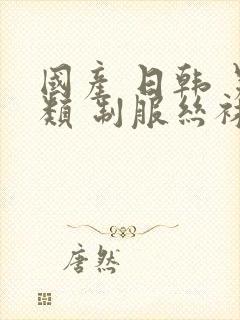 國産 日韓
類 制服絲襪
唐然